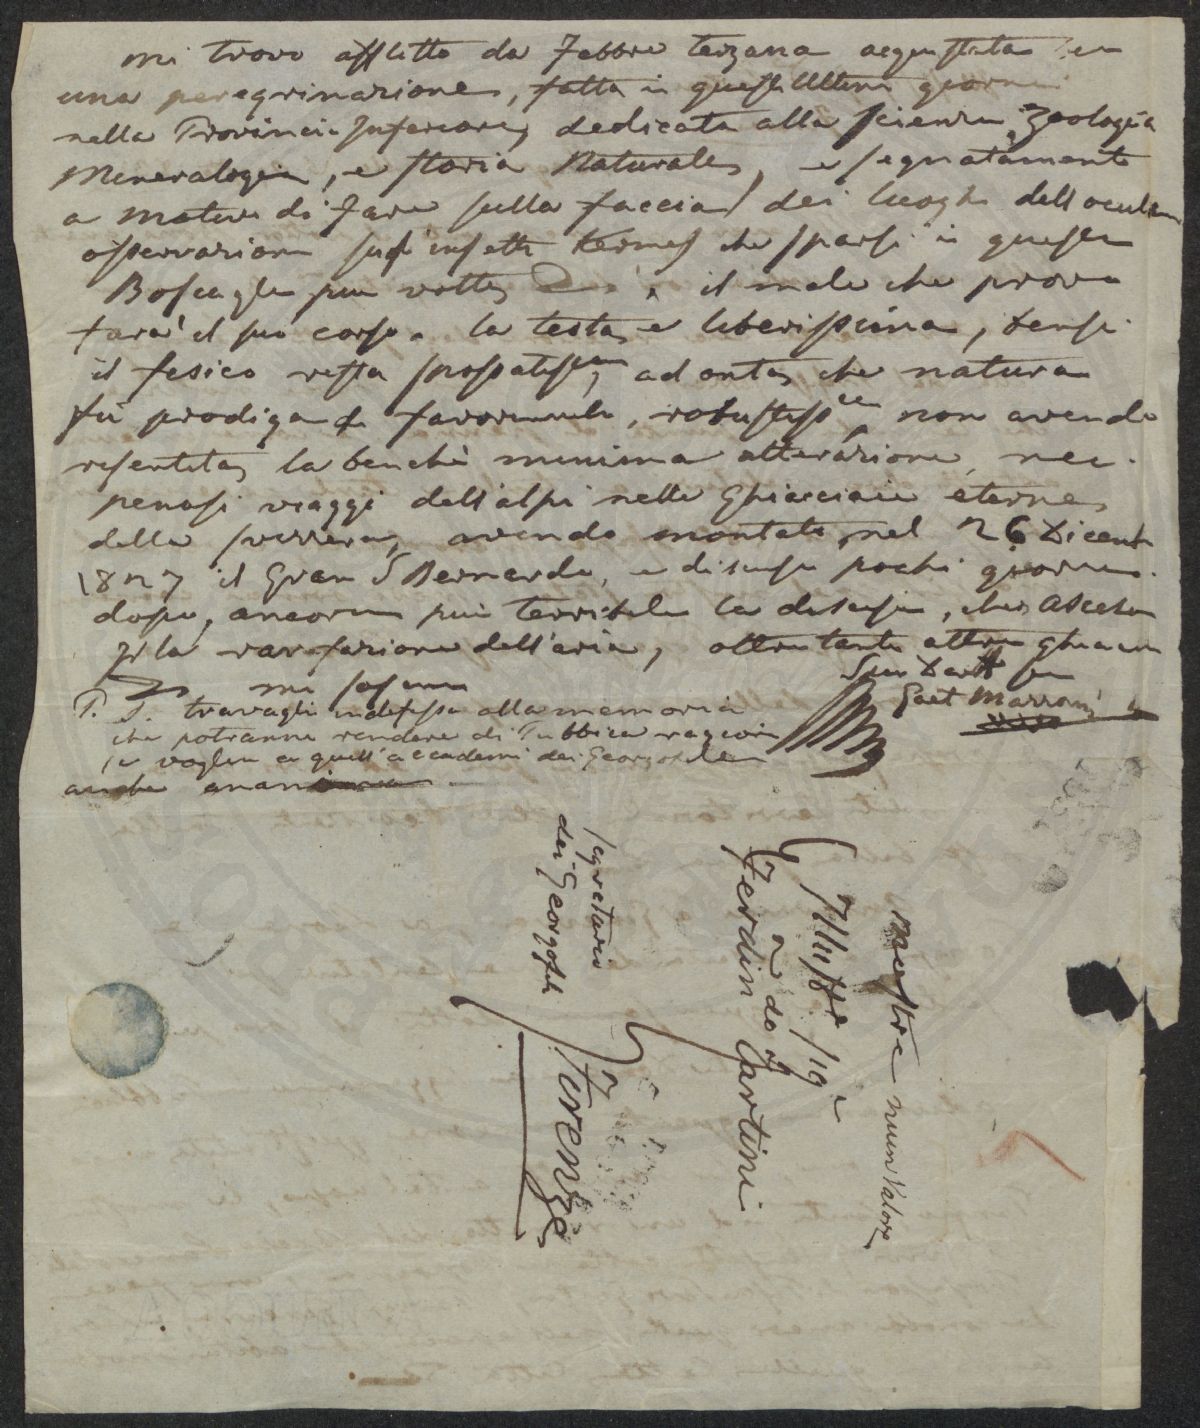 mi trovo afflitto da Febbre terzana acquistata in
una peregrinazione, fatta in questi Ultimi giorni
nella Provincia Inferiore, dedicata alla scienza Zoologia
Mineralogia, e storia Naturale, e segnatamente
a motivo di fare sulla faccia dei luoghi dell'oculare
osservazione sugl'insetti Kermes che sparsi in queste
Boscaglie piu volte il male che provo
farà il suo corso. la testa è liberissima, bensi
il fisico resta spossatiss, ad onta che natura
fù prodiga di favorirmelo, robustiss non avendo
risentita la benchè minima alterazione, nei
penosi viaggi dell'alpi nelle Ghiacciaie eterne
della svizzera, avendo montato nel 26 Dicemb
1827 il Gran S Bernardo, e disceso pochi giorni
dopo, ancora piu terribile la discesa, che ascesa
p la rarefazione dell'aria, oltre tanto altro ghiaccio
mi
Gaet Marroni
P. S. travagli indefessa alla memoria
che potranno rendere di Pubblica ragion
se voglin a quell'accademi dei Georgofili
anche
Mostre niun Valore
Illuss Sig
Ferdindo Tartini
Segretario
dei Georgofili
Firenze